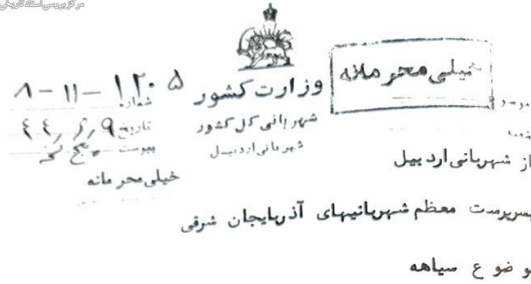 مرکز بررسی اسناد تاریخی
خیلی محرمانه
وزارت کشور
شهربانی کل کشور
شهربانی اردبیل
شماره ۱۲۰۵-۱۱-۸
تاریخ ۴۴٫۶٫۹
پیوست
خیلی محرمانه
از شهربانی اردبیل
سرپرست معظم شهربانیهای آذربایجان شرقی
موضوع سیاهه